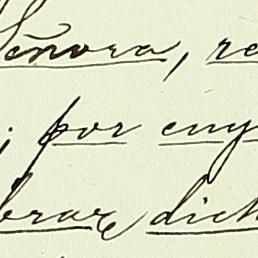 Señora, re
; por cuy
brar dich